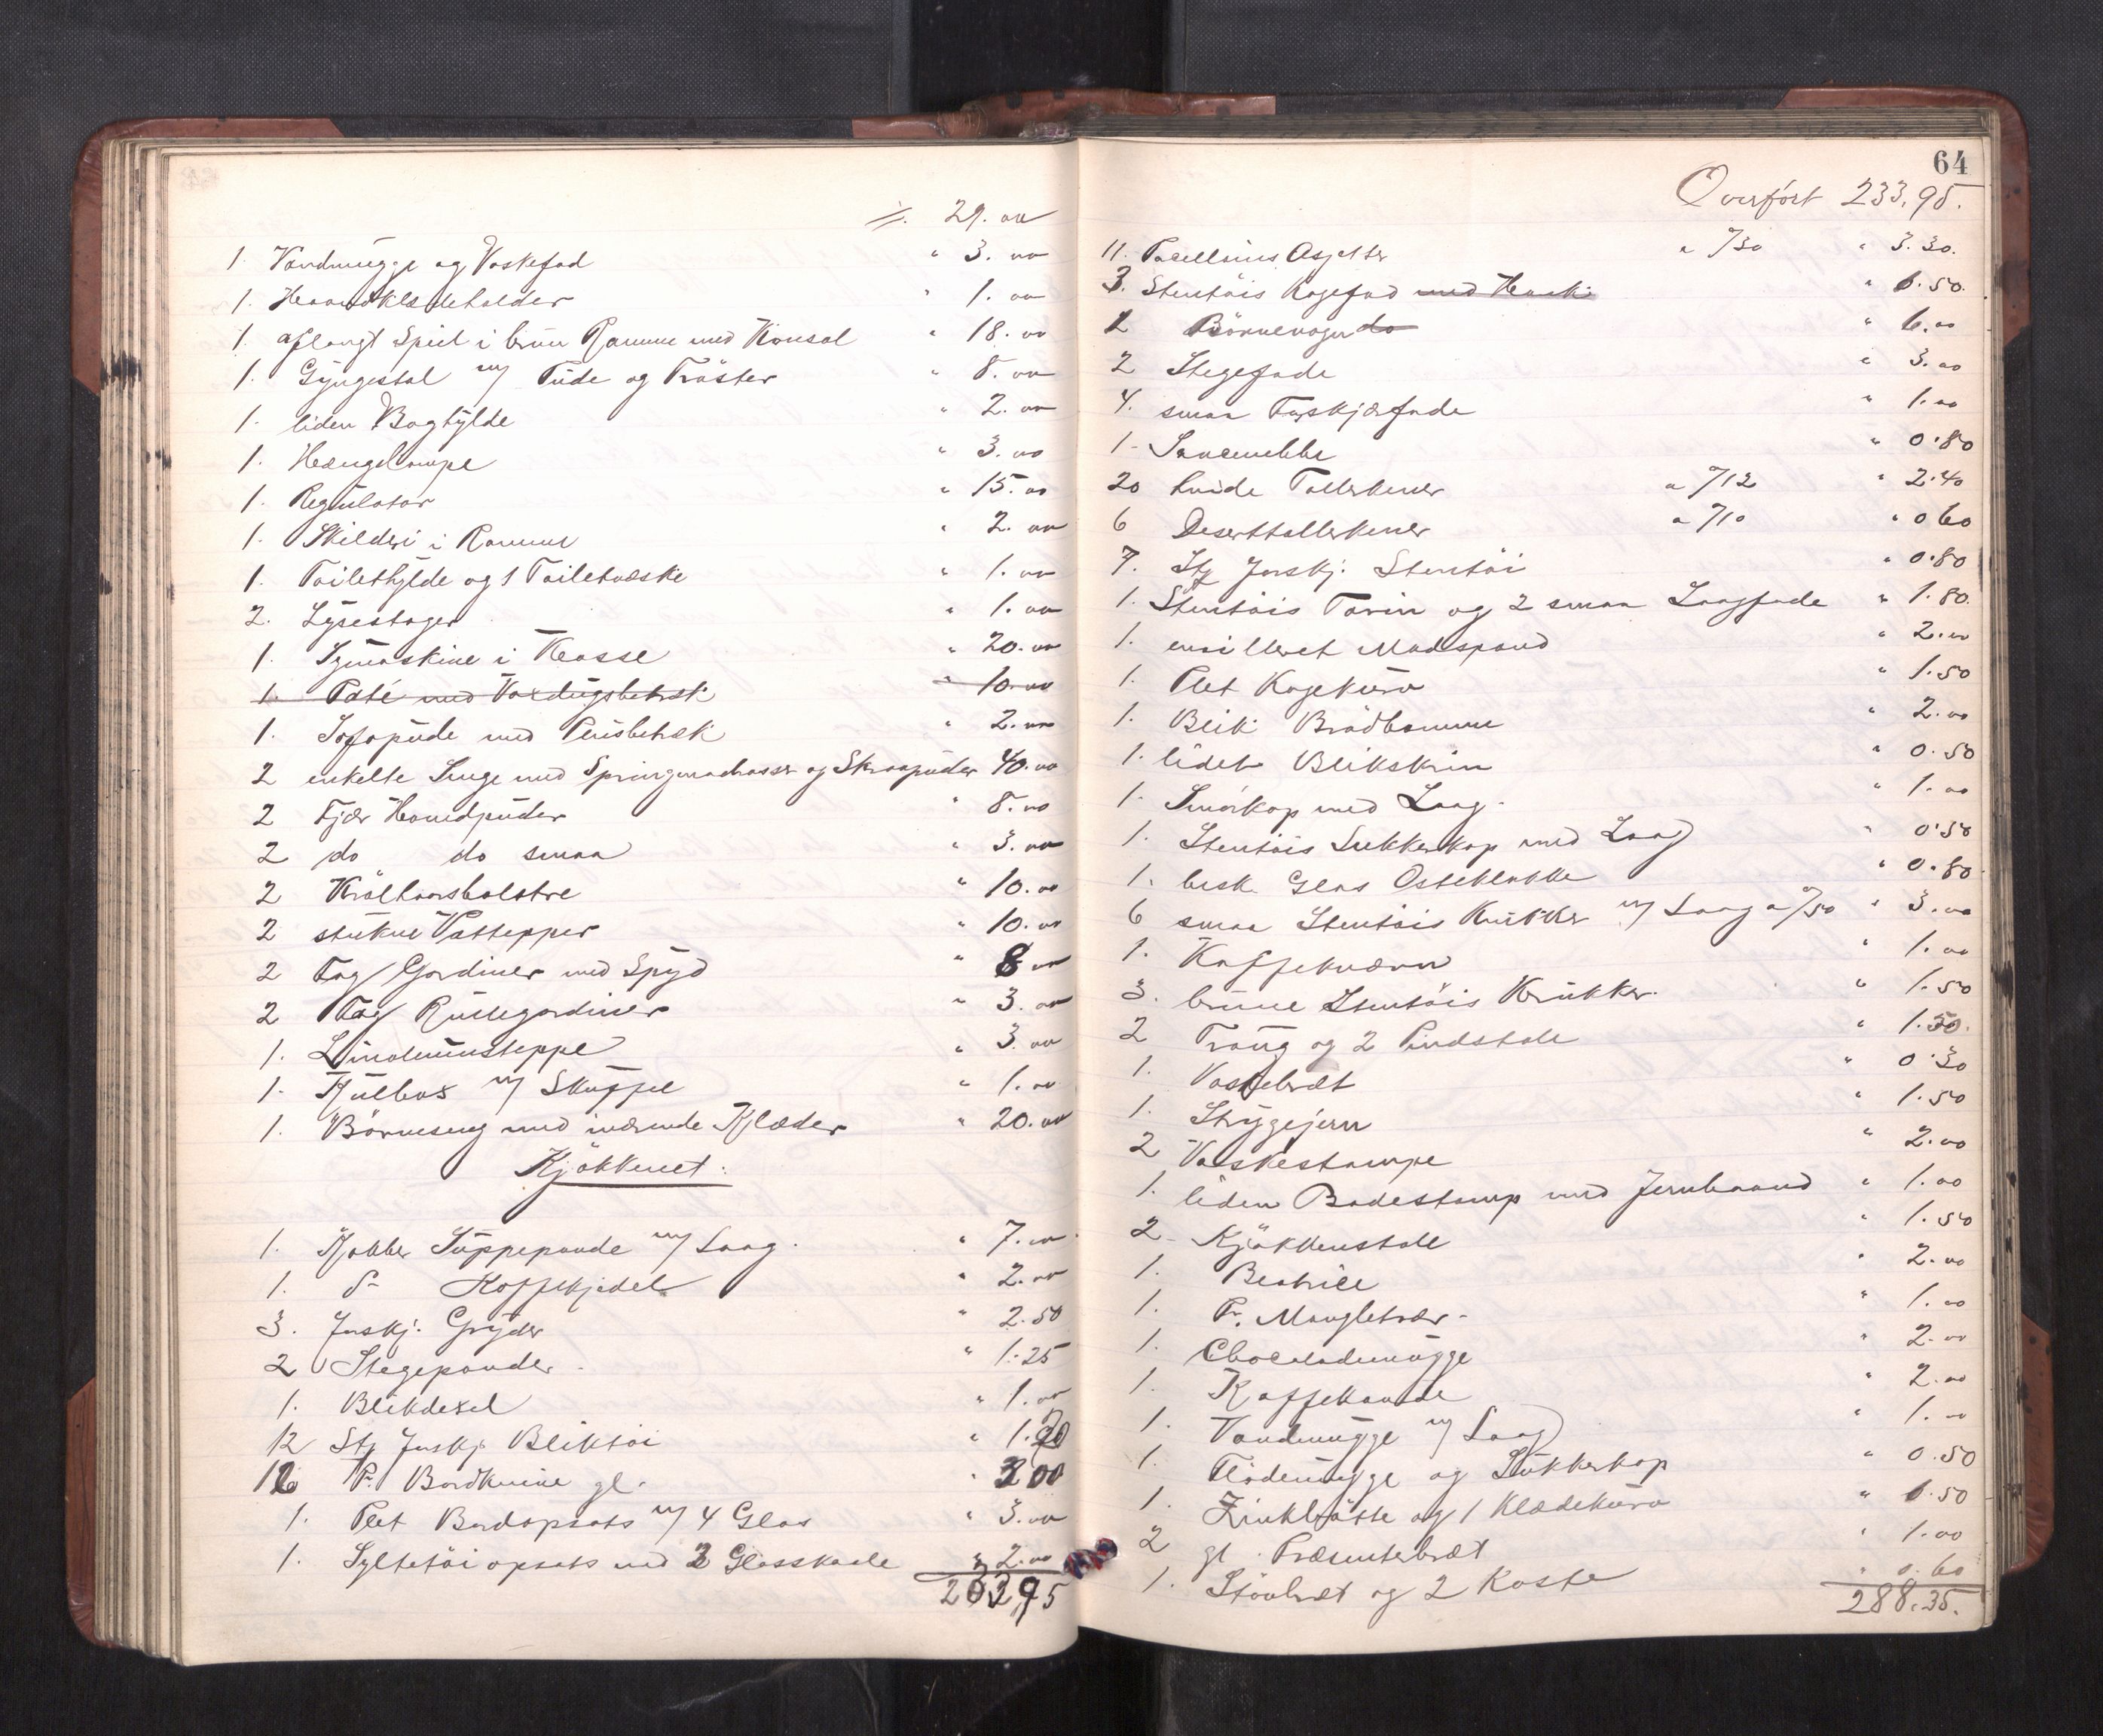 ⁒ 29.00
1. Vandmugge og Vaskefad " 3.00
1. Haandklædeholder " 1.00
1. aflangt Speil i brun Ramme med Konsol " 18.00
1. Gyngestol m/ Pude og Trøster " 8.00
1. liden Boghylde " 2.00
1. Hængelampe " 3.00
1. Regulator " 15.00
1. Skilderi i Ramme " 2.00
1. Toilethylde og 1 Toiletæske " 1.00
2. Lysestager " 1.00
1. Symaskine i Kasse " 20.00
1. Paté med Voxdugsbetræk " 10.00
1. Sofapude med Plusbetræk " 2.00
2 enkelte Senge med Springmadrasser og Skraapuder 40.00
2 Fjær Hovedpuder " 8.00
2 do do smaa " 3.00
2 Krølhaarsbolstre " 10.00
2 stukne Vattepper " 10.00
2 Fag Gardiner med Spyd " 8.00
2 Fag Rullegardiner " 3.00
1. Linoleumsteppe " 3.00
1. Kulbox m/ Skuffe " 1.00
1. Börneseng med iværende Klæder " 20.00
Kjökkenet:
1. Kobber Suppepande m/ Laag. " 7.00
1. do Kaffekjedel " 2.00
3. forskj. Gryder " 2.50
2 Stegepander. " 1.25
1. Blikdexel " 1.00
12 Stk forskj. Bliktöi " 1.20
12 Pr. Bordknive gl. " 3 00
1. Plet Bordopsats m/ 4 Glas " 3.00
1. Syltetöiopsats med 3 Glasskaale " 2.00
233,95
64
Overført 233,95.
11. Porcellains Asjetter a "/30 " 3.30.
3. Stentöis Kagefad med Hank " 1.50.
1 Börnevogn do " 6.00
2 Stegefade " 3.00
4. smaa Forskjærfade " 1.00
1. Saucenebbe " 0.80
20 hvide Tallerkener a "/12 " 2.40
6 Deserttallerkener a "/10 " 0 60
7. Stk forskj. Stentöi " 0.80
1. Stentöis Terin og 2 smaa Laagfade " 1.80.
1. emilleret Madspand " 2.00
1. Plet Kagekurv " 1.50
1. Blik Brödbomme " 2.00
1. lidet Blikskrin " 0.50
1. Smörkop med Laag. " 1.00
1. Stentöis Sukkerkop med Laag " 0.50
1. besk. Glas Osteklokke " 0.80
6 smaa Stentöis Krukker m/ Laag a "/50 " 3.00
1. Kaffekværn " 1.00
3. brune Stentöis Krukker. " 1.50
2 Traug og 2 Pindstole " 1.50.
1. Vaskebræt " 0.30
1. Strygejern " 1.50
2 Vaskestampe " 2.00
1. liden Badestamp med Jernbaand " 1.00
2 Kjökkenstole " 1.50
1. Beatrice " 2.00
1. Pr. Mangletræer. " 1.00
1. Chocolademugge " 2.00
1. Kaffekande " 2.00
1. Vandmugge m/ Laag " 1.00
1. Flödemugge og Sukkerkop " 0.50
1. Zinkbötte og 1 Klædekurv " 1.50
2 gl. Præsenterbræt " 1.00
1. Stövbræt og 2 Koste " 0.60
288.35.